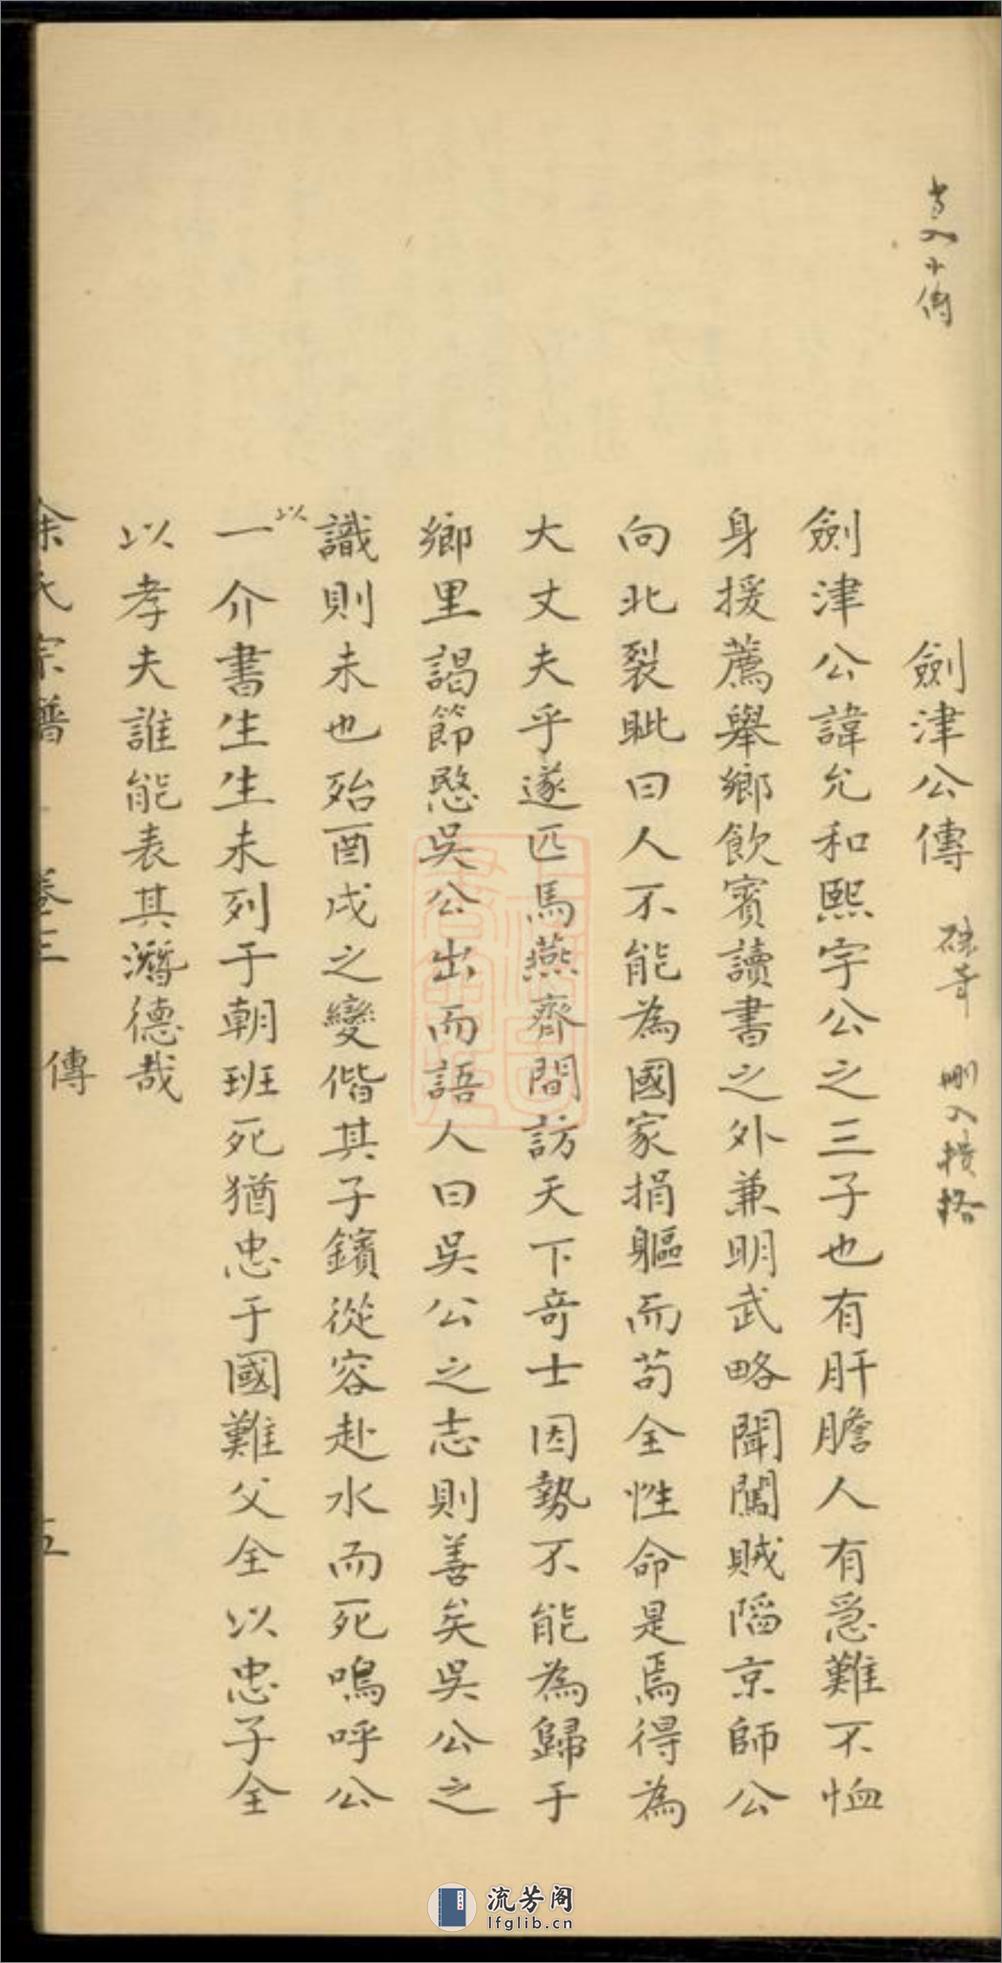 劍津公傳
刪入橫格
劍津公諱允和熙宇公之三子也有肝膽人有急難不恤
身援薦舉鄉飲賓讀書之外兼明武略聞闖賊陷京師公
向北裂眦曰人不能為國家捐軀而苟全性命是焉得為
大丈夫乎遂匹馬燕齊間訪天下奇士因勢不能為歸于
鄉里謁節愍吳公出而語人曰吳公之志則善矣吳公之
識則未也殆酉戌之變偕其子鑌從容赴水而死嗚呼公
以
一介書生生未列于朝班死猶忠于國難父全以忠子全
以孝夫誰能表其潛德哉
余氏宗譜 卷三 傳 五
流芳阁
lfglib.cn